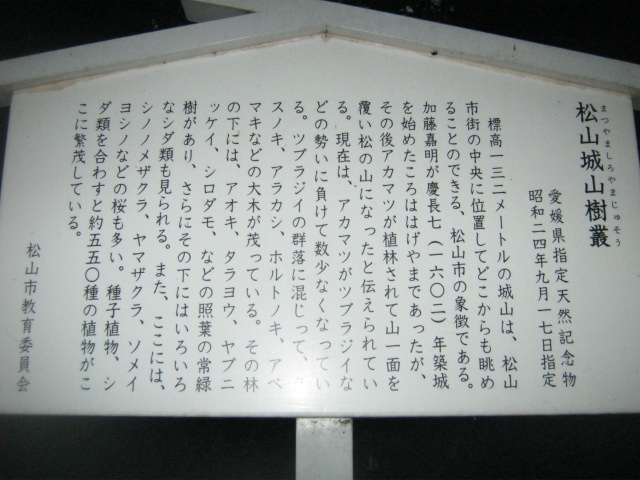 まつやましろやまじゅそう
松山城山樹叢
愛媛県指定天然記念物
昭和二四年九月一七日指定
標高一三二メートルの城山は、松山
市街の中央に位置してどこからも眺め
ることのできる、松山市の象徴である。
加藤嘉明が慶長七（一六〇二）年築城
を始めたころははげやまであったが、
その後アカマツが植林されて山一面を
覆い松の山になったと伝えられてい
る。現在は、アカマツがツブラジイな
どの勢いに負けて数少なくなってい
る。ツブラジイの群落に混じって、ク
スノキ、アラカシ、ホルトノキ、アベ
マキなどの大木が茂っている。その林
の下には、アオキ、タラヨウ、ヤブニ
ッケイ、シロダモ、などの照葉の常緑
樹があり、さらにその下にはいろいろ
なシダ類も見られる。また、ここには、
シノノメザクラ、ヤマザクラ、ソメイ
ヨシノなどの桜も多い。種子植物、シ
ダ類を合わすと約五五〇種の植物がこ
こに繁茂している。
松山市教育委員会